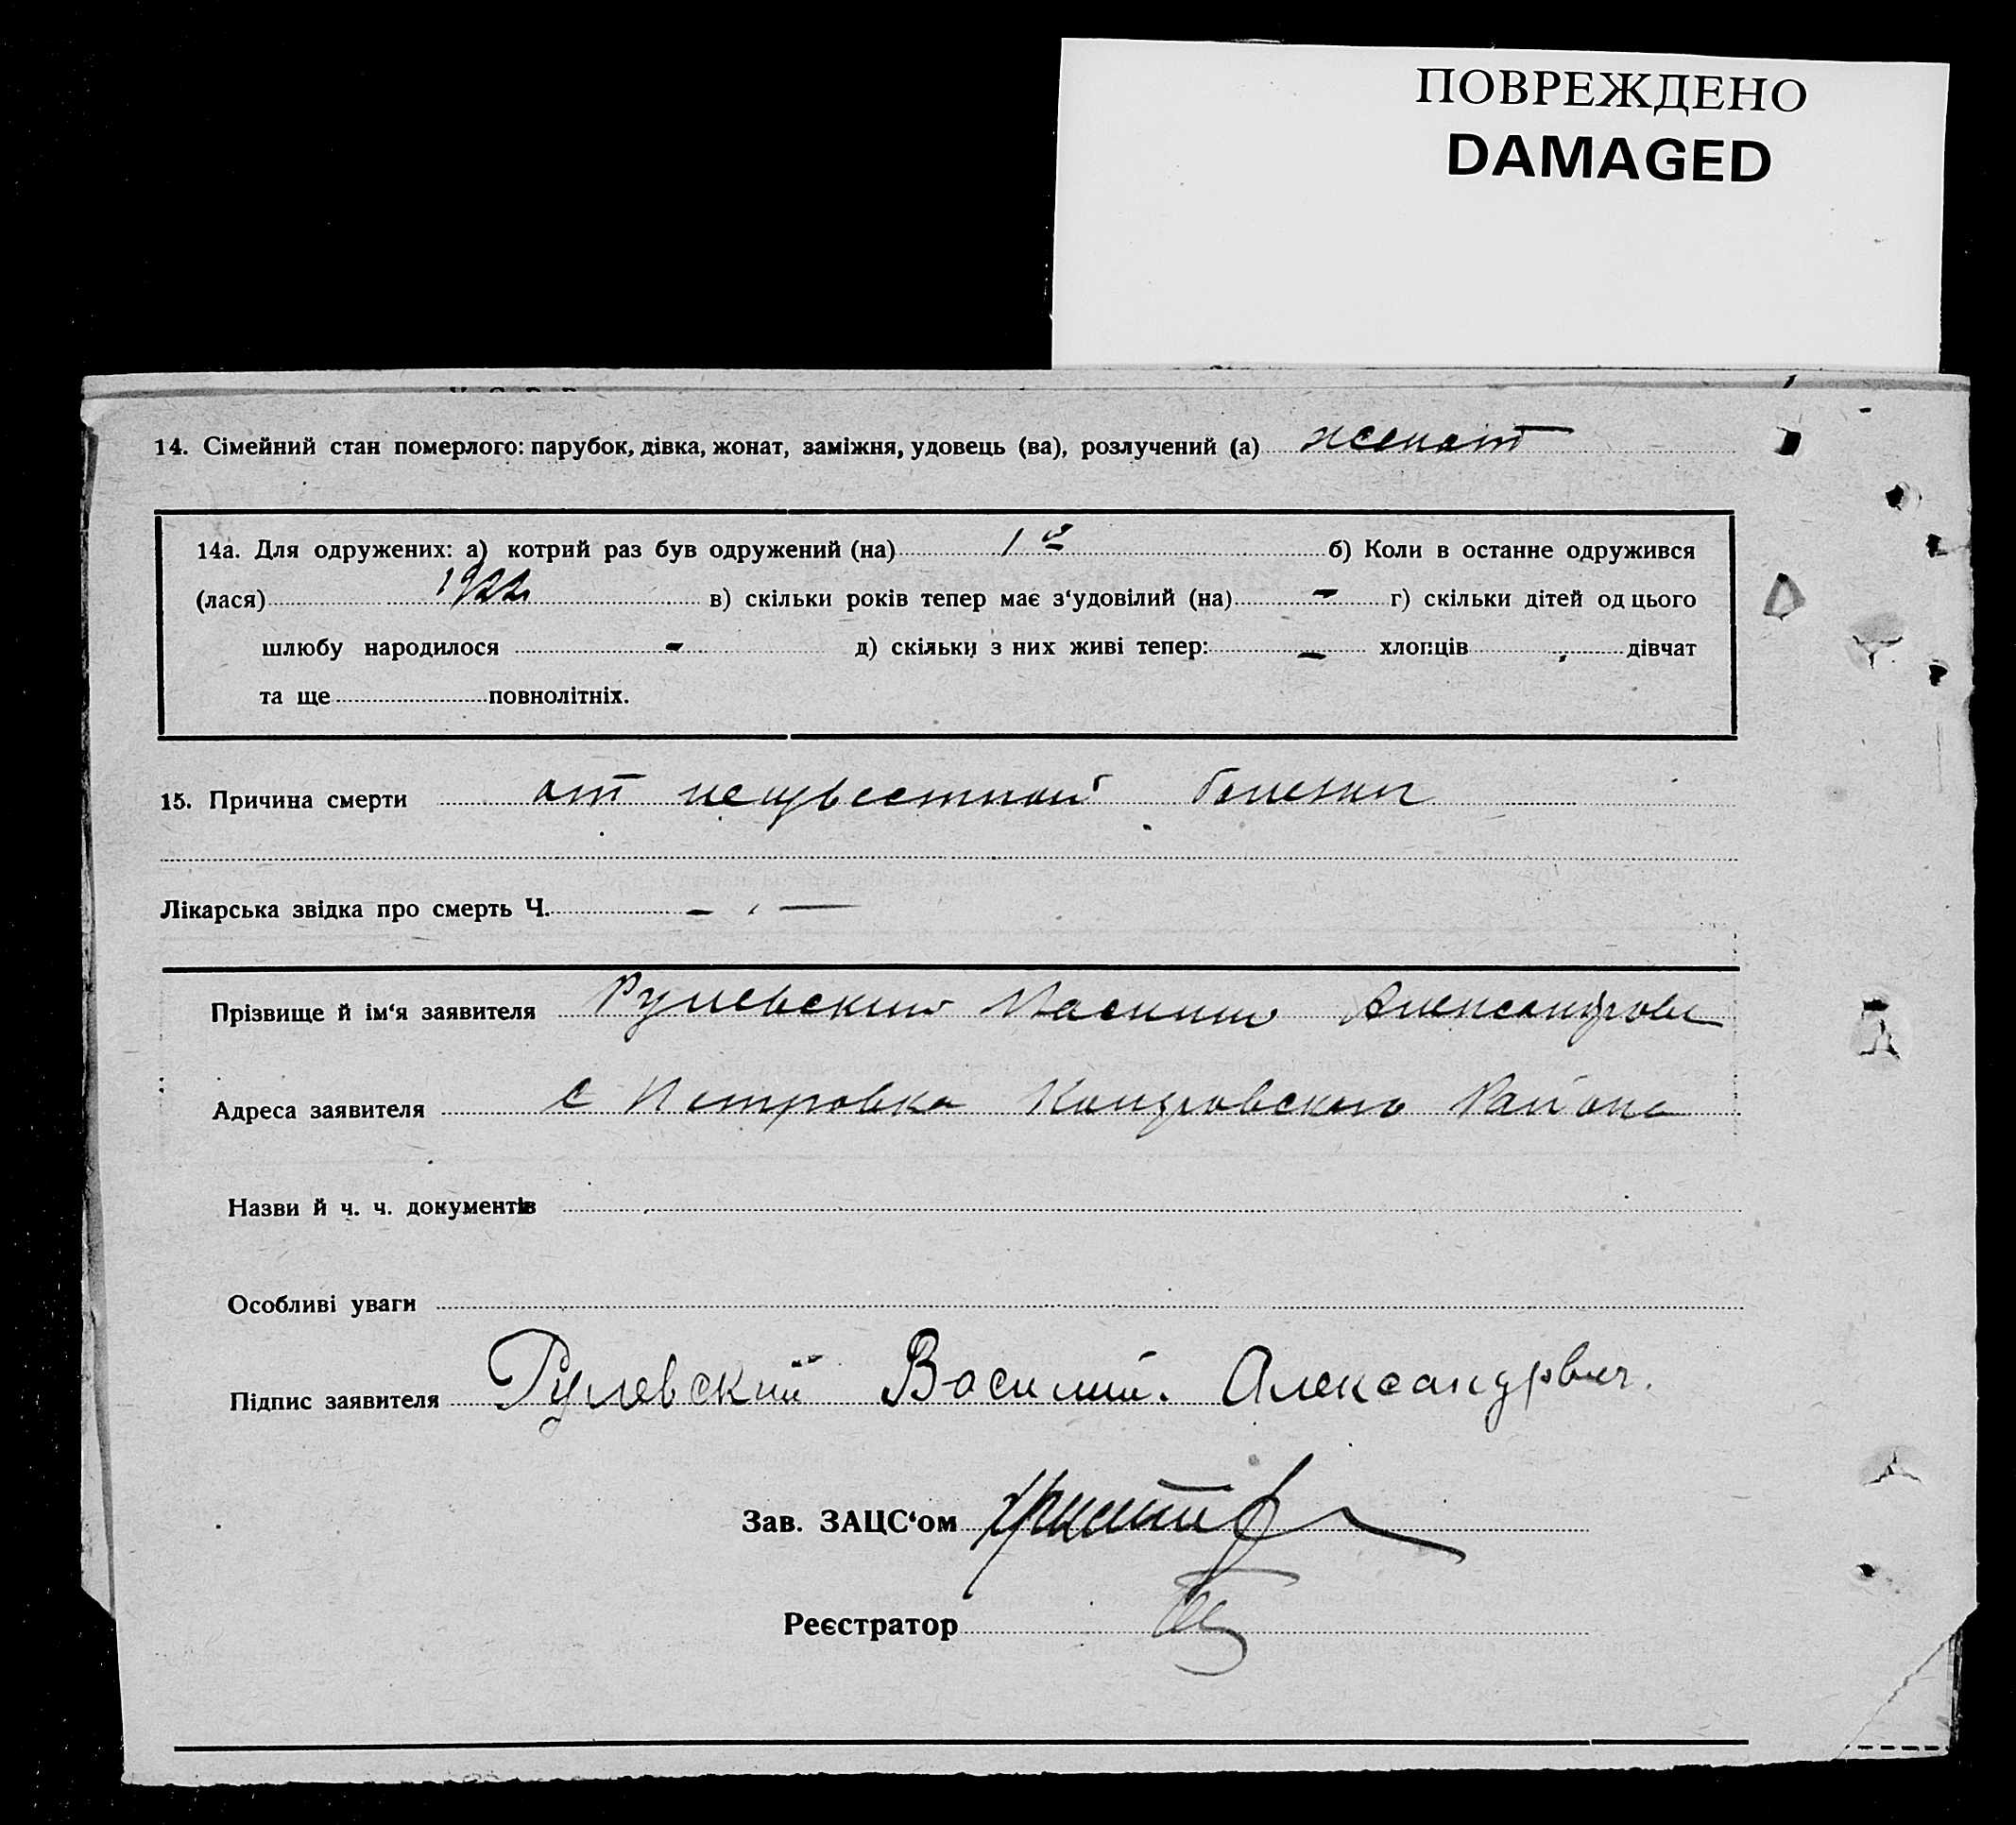 ПОВРЕЖДЕНО
DAMAGED
14. Сімейний стан померлого: парубок, дівка, жонат, заміжня, удовець (ва), розлучений (а) женат
14а. Для одружених: а) котрий раз був одружений (на) 1й б) Коли в останне одружився
(лася) 1922 в) скільки років тепер має з‘удовілий (на) - г) скільки дітей од цього
шлюбу народилося - д) скільки з них живі тепер: - хлопців дівчат
та ще повнолітніх.
15. Причина смерти от неизвестной болезни
Лікарська звідка про смерть Ч. - —
Прізвище й ім‘я заявителя Рулевский Александрови
Адреса заявителя с Петровка Района
Назви й ч. ч. документів
Особливі уваги
Підпис заявителя Рулевский Василий. Александрвич.
Зав. ЗАЦС‘ом
Реєстратор